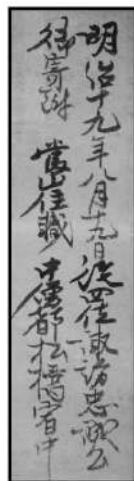 明治十九年八月十九日従四位諏訪忠誠公
御寄附　當山住職　中僧都松橋宥中